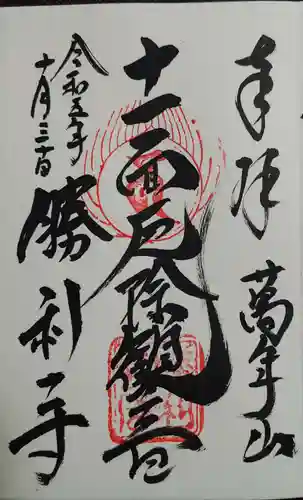 奉拝
萬年山
十一面厄除観音
勝利寺
令和五年
十月三十日